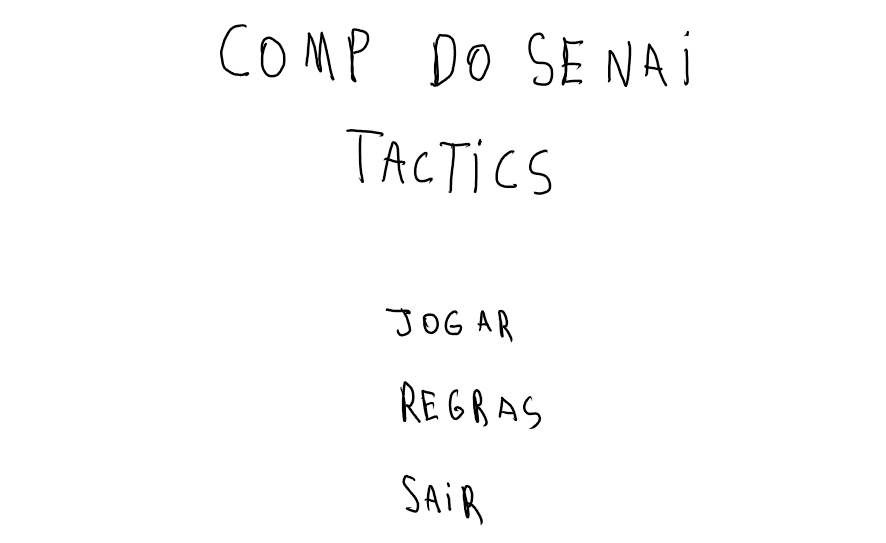 COMP DO SENAi
TACTiCS
JOGAR
REGRAS
SAiR